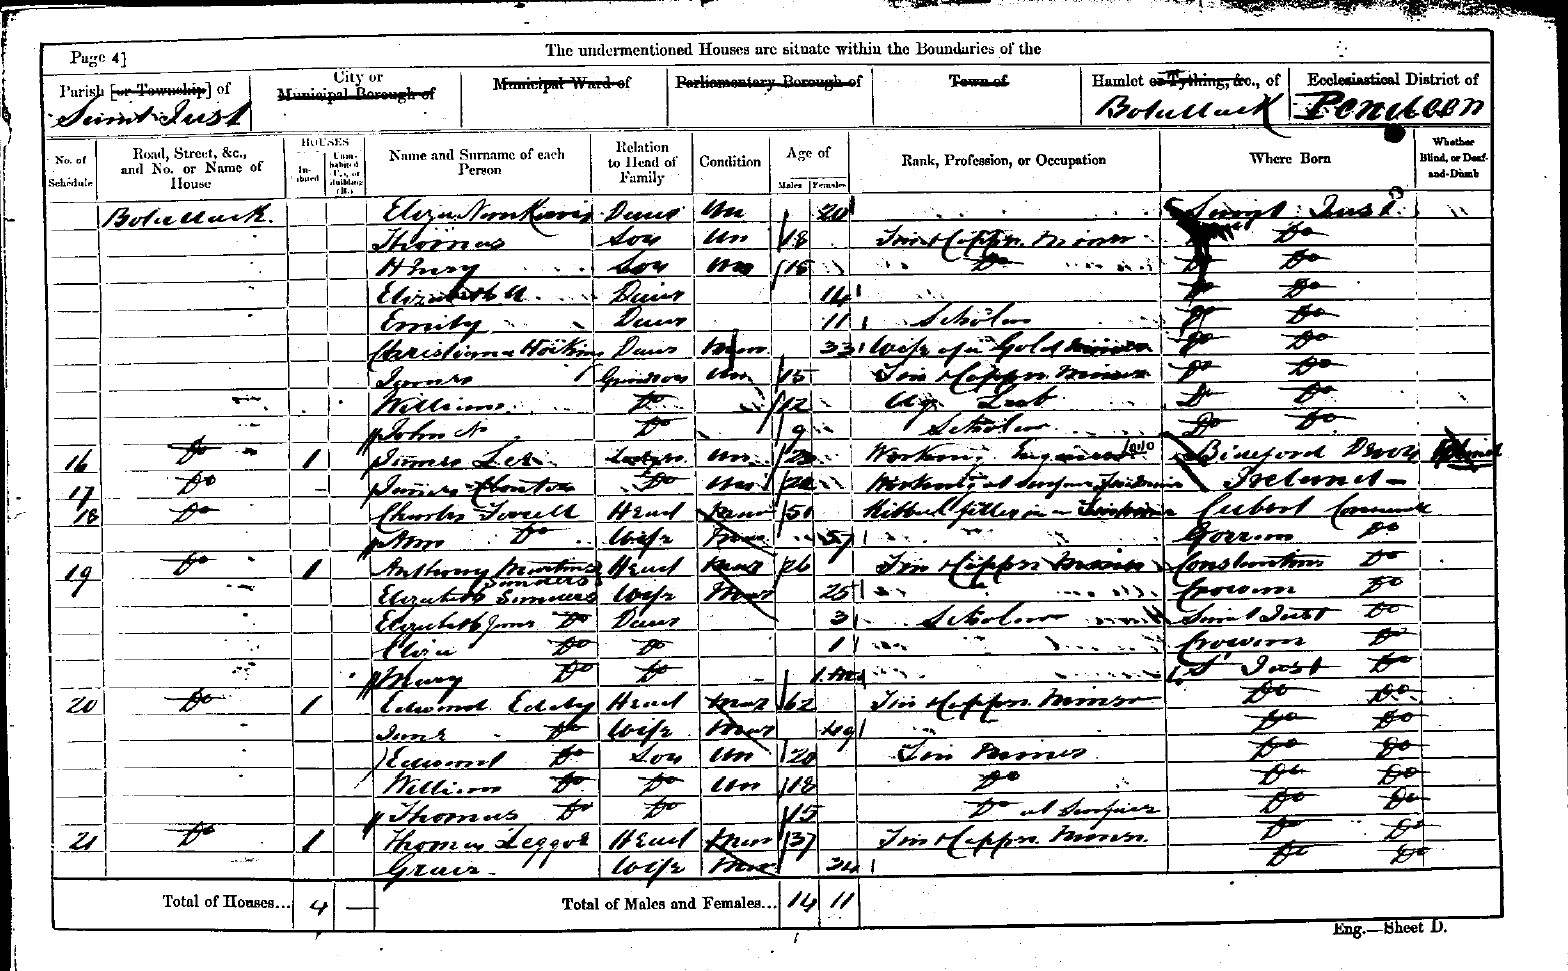 The undermentioned Houses are situate within the Boundaries of the
Page 4]
Parish [or Township] of
City or Municipal Borough of
Municipal Ward of
Parliamentary Borough of
Town of
Hamlet or Tything, &c., of
Ecclesiastical District of
Saint Just
Botallack
Pendeen
No. of Schedule
Road, Street, &c., and No. or Name of House
HOUSES
Inhabited
Uninhabited (U.), or Building (B.)
Name and Surname of each Person
Relation to Head of Family
Condition
Age of
Males
Females
Rank, Profession, or Occupation
Where Born
Whether Blind, or Deaf-and-Dumb
Botallack Eliza Daur Un 20 Saint Just
Thomas Son Un 18 Tin & Coppr. Miner Do Do
Henry Son Un 15 Do Do Do
Elizabeth A. Daur 14 Do Do
Emily Daur 11 Scholar Do Do
Christiana Hosking Daur Mar 33 Wife of a Gold Miner Do Do
James Grandson Un 15 Tin & Coppr. Miner Do Do
William Do 12 Ag Lab Do Do
John N Do 9 Scholar Do Do
16 Do 1 James Lee Lodger Un Working Engineer Bideford Devon
17 Do James Do Un Working at Surface Ireland
18 Do Charles Head Mar 50 Cubert Cornwall
Ann Do Wife Mar 57 Gorran Do
19 Do 1 Anthony Martin Sanders Head Mar 26 Tin & Coppr. Miner Constantine Do
Elizabeth Sanders Wife Mar 25 Crowan Do
Elizabeth Jane Do Daur 3 Scholar Saint Just Do
Eliza Do Do 1 Crowan Do
Mary Do Do 1 Mo St Just Do
20 Do 1 Edward Eddy Head Mar 62 Tin & Coppr. Miner Do Do
Jane Do Wife Mar 49 Do Do
Edward Do Son Un 20 Tin Miner Do Do
William Do Do Un 18 Do Do Do
Thomas Do Do 15 Do at Surface Do Do
21 Do 1 Thomas Leggoe Head Mar 37 Tin & Coppr. Miner Do Do
Grace Wife Mar 34 Do Do
Total of Houses... 4 — Total of Males and Females... 14 11
Eng.—Sheet D.